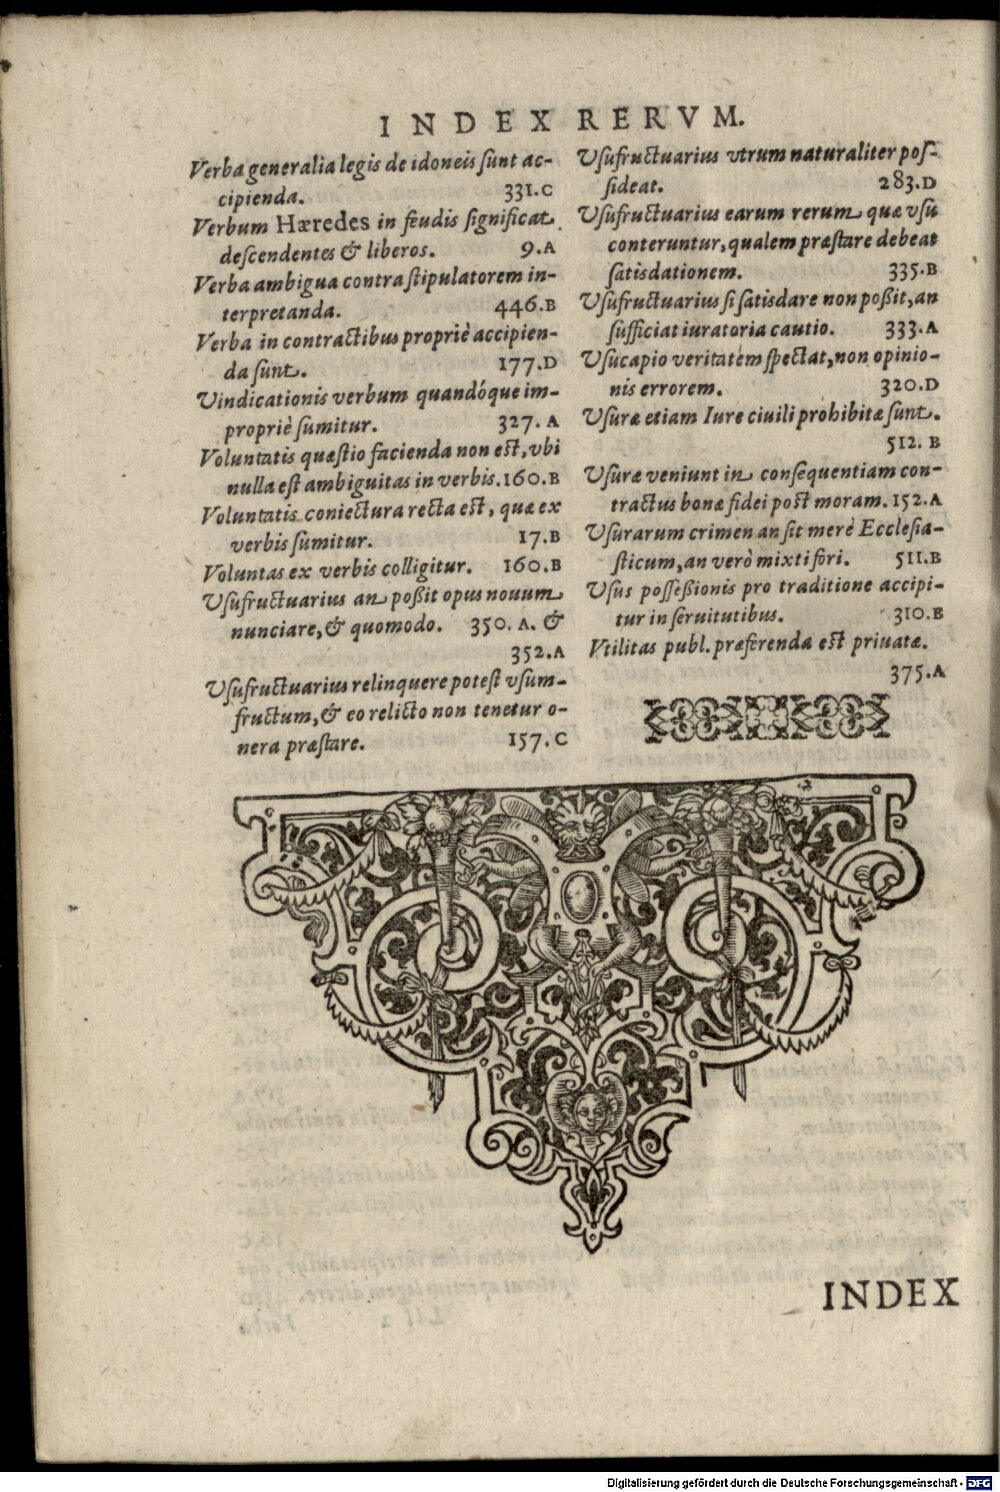 INDEX RERVM.
Verba generalia legis de idoneis ſunt ac-
cipienda. 331.C
Verbum Hæredes in feudis ſignificat
deſcendentes & liberos. 9.A
Verba ambigua contra ſtipulatorem in-
terpretanda. 446.B
Verba in contractibus propriè accipien-
da ſunt. 177.D
Vindicationis verbum quandóque im-
propriè ſumitur. 327.A
Voluntatis quæſtio facienda non eſt, vbi
nulla eſt ambiguitas in verbis. 160.B
Voluntatis coniectura recta eſt, quæ ex
verbis ſumitur. 17.B
Voluntas ex verbis colligitur. 160.B
Vſufructuarius an poßit opus nouum
nunciare, & quomodo. 350. A. &
352.A
Vſufructuarius relinquere poteſt vſum-
fructum, & eo relicto non tenetur o-
nera præſtare. 157.C
Vſufructuarius vtrum naturaliter poſ-
ſideat. 283.D
Vſufructuarius earum rerum quæ vſu
conteruntur, qualem præſtare debeat
ſatisdationem. 335.B
Vſufructuarius ſi ſatisdare non poßit, an
ſufficiat iuratoria cautio. 333.A
Vſucapio veritatem ſpectat, non opinio-
nis errorem. 320.D
Vſuræ etiam Iure ciuili prohibitæ ſunt.
512. B
Vſuræ veniunt in conſequentiam con-
tractus bonæ fidei poſt moram. 152.A
Vſurarum crimen an ſit merè Eccleſia-
ſticum, an verò mixti fori. 511.B
Vſus poſſeßionis pro traditione accipi-
tur in ſeruitutibus. 310.B
Vtilitas publ. præferenda eſt priuatæ.
375.A
INDEX
Digitalisierung gefördert durch die Deutsche Forschungsgemeinschaft - DFG